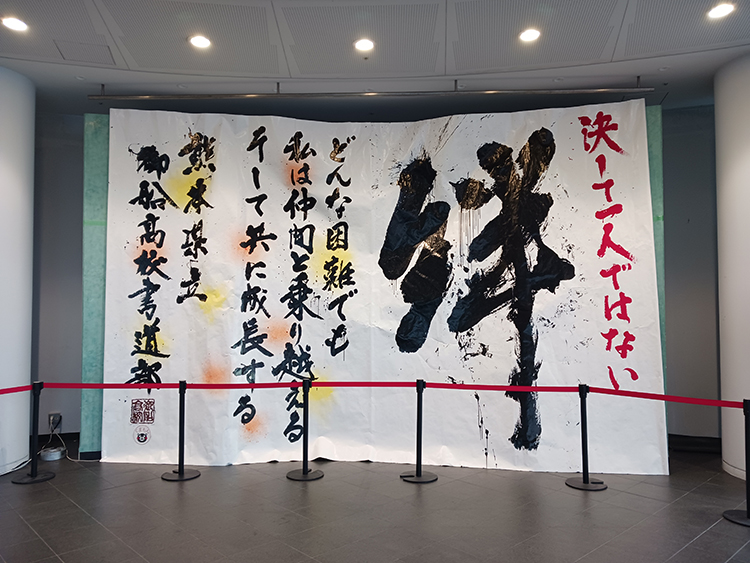 決して一人ではない
絆
どんな困難でも
私は仲間と乗り越える
そして共に成長する
熊本県立
御船高校書道部